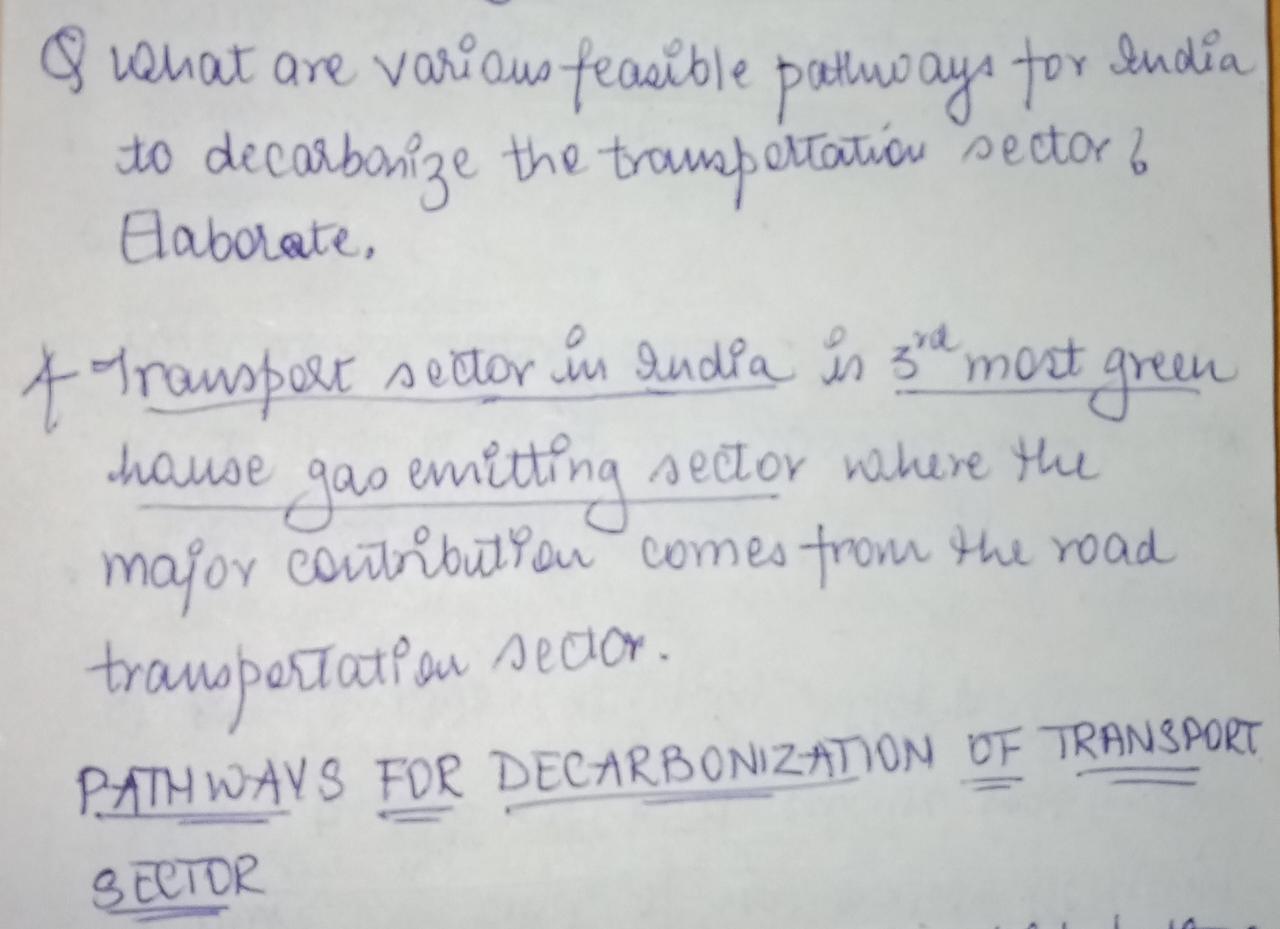 Q What are various feasible pathways for India
to decarbonize the transportation sector?
Elaborate.
A Transport sector in India is 3rd most green
hause gas emitting sector where the
major contribution comes from the road
transportation sector.
PATHWAYS FOR DECARBONIZATION OF TRANSPORT
SECTOR